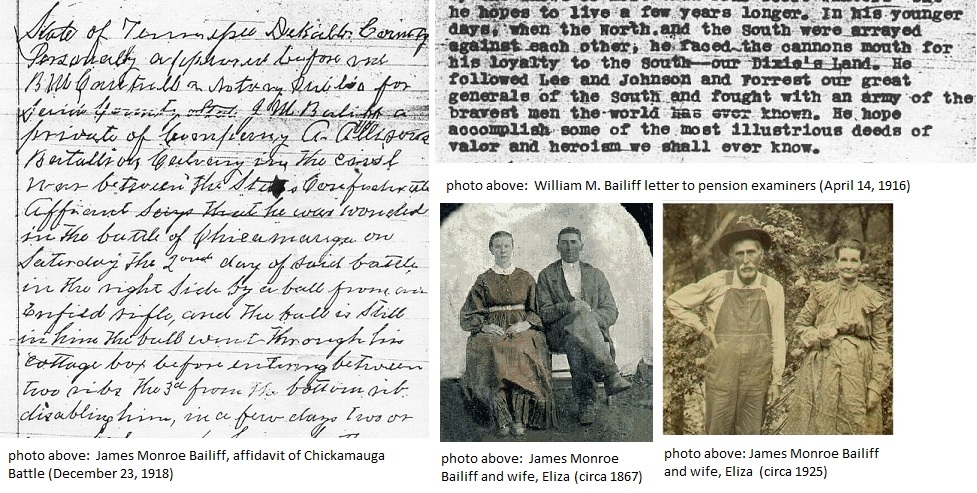 State of Tennessee DeKalb County
Personally appeared before me
B M Cantrell a Notary Public for
County, J M Bailiff a
private of Company A. Allisons
Battalion Calvary in the
war between the States Confederate
Affiant Says that he was wonded
in the battle of Chicamauga on
Saturday the 2nd day of said battle
in the right side by a ball from an
Enfield rifle, and the ball is still
in him the ball went through his
cottage box before entering between
two ribs the 3rd from the bottom rib
disabling him, in a few days two or
photo above: James Monroe Bailiff, affidavit of Chickamauga
Battle (December 23, 1918)
he hopes to live a few years longer. In his younger
days, when the North.and the South were arrayed
against each other, he faced the cannons mouth for
his loyalty to the South--our Dixie's Land. He
followed Lee and Johnson and Forrest our great
generals of the South and fought with an army of the
bravest men the world has ever known. He hope
accomplish some of the most illustrious deeds of
valor and heroism we shall ever know.
photo above: William M. Bailiff letter to pension examiners (April 14, 1916)
photo above: James Monroe
Bailiff and wife, Eliza (circa 1867)
photo above: James Monroe Bailiff
and wife, Eliza (circa 1925)